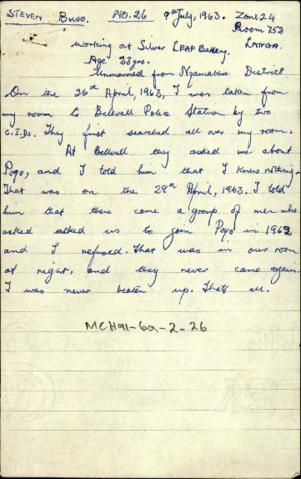 STEVEN Buso. NO. 26 9th July, 1963. Zone 24
Room 753
LANGA.
Working at Silver LEAF Bakery.
Age 33yrs.
Unmarried from Ngamakwe District
On the 26th April, 1963, I was taken from
my room to Bellvell Police Station by two
C.I.Ds. They first searched all over my room.
At Bellvell they asked me about
Pogo, and I told him that I knew nothing.
That was on the 29th April, 1963. I told
him that there came a group of men who
asked asked us to join Pogo in 1962
and I refused. That was in our room
at night, and they never came again.
I was never beaten up. That's all.
MCH91-6a-2-26